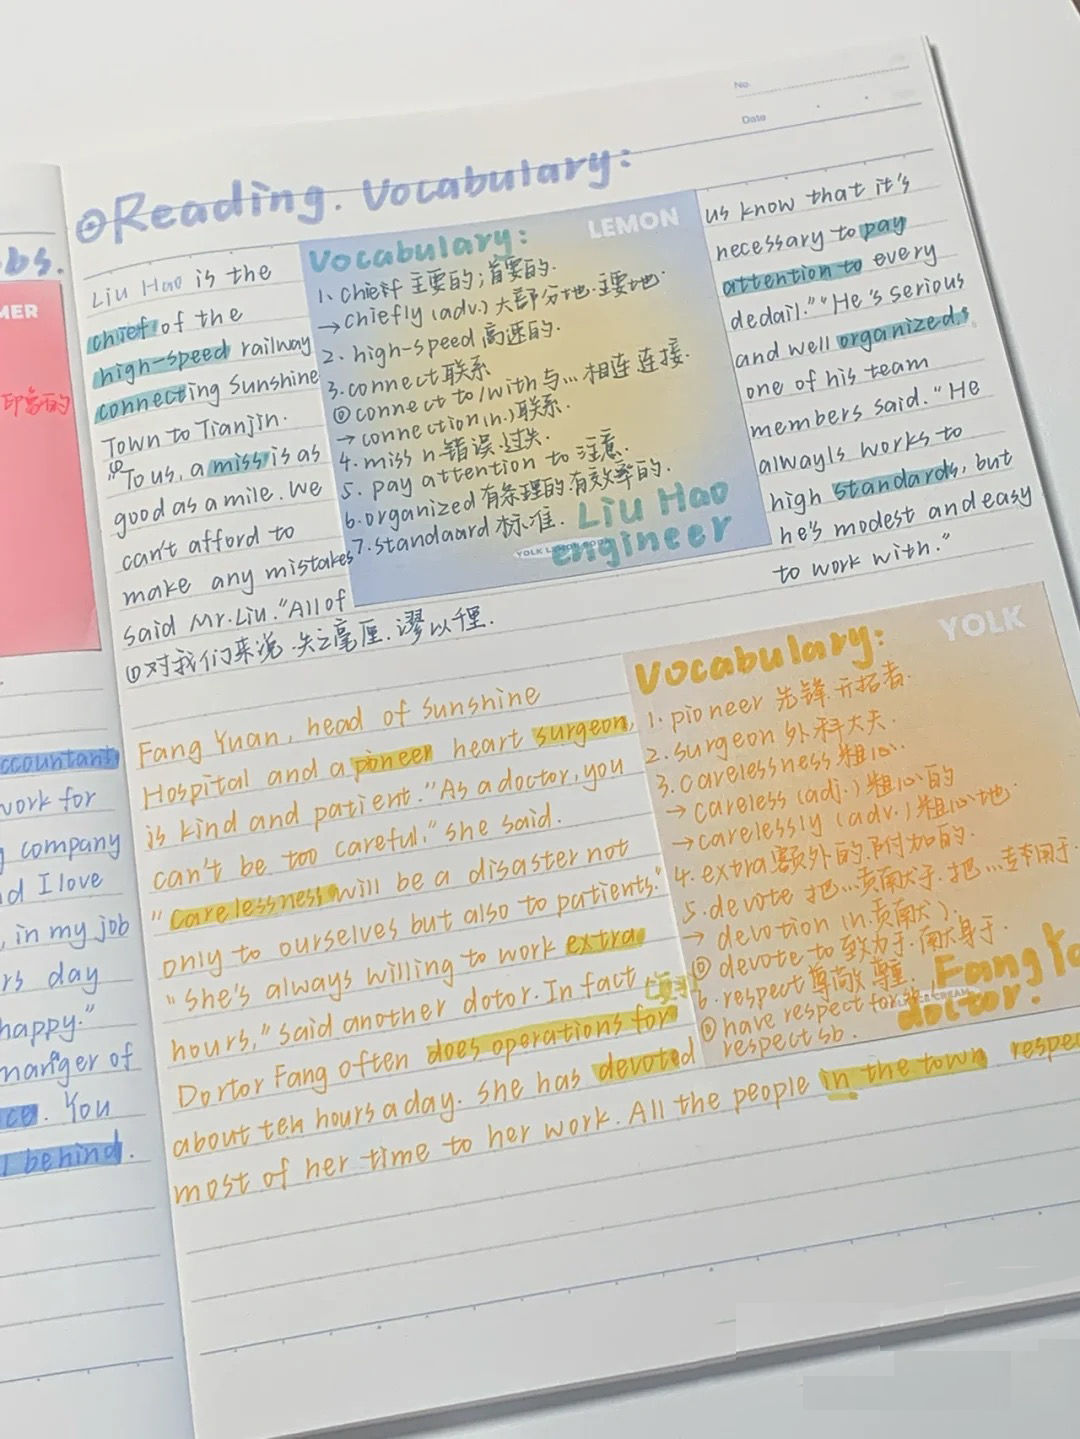 No.
Date
Reading. Vocabulary:
Liu Hao is the
chief of the
high-speed railway
connecting Sunshine
Town to Tianjin.
① "To us, a miss is as
good as a mile. We
can't afford to
make any mistakes
said Mr. Liu. "All of
① 对我们来说 失之毫厘. 谬以千里.
LEMON
Vocabulary:
1. chief 主要的;首要的.
→ chiefly (adv.) 大部分地.主要地.
2. high-speed 高速的.
3. connect 联系
◎ connect to/with 与... 相连 连接.
→ connection (n.) 联系.
4. miss n 错误.过失.
5. pay attention to 注意.
6. organized 有条理的.有效率的.
7. standaard 标准.
Liu Hao
engineer
us know that it's
necessary to pay
attention to every
dedail." "He's serious
and well organized,
one of his team
members said. "He
alwayls works to
high standards, but
he's modest and easy
to work with."
Fang Yuan, head of Sunshine
Hospital and a pioneer heart surgeon,
is kind and patient. "As a doctor, you
can't be too careful." she said.
"Carelessness will be a disaster not
only to ourselves but also to patients."
"She's always willing to work extra
hours," said another dotor. In fact
Dortor Fang often does operations for
about ten hours a day. She has devoted
most of her time to her work. All the people in the town
YOLK
Vocabulary:
1. pioneer 先锋.开拓者.
2. surgeon 外科大夫.
3. carelessness 粗心.
→ careless (adj.) 粗心的
→ carelessly (adv.) 粗心地.
4. extra 额外的.附加的.
5. devote 把...贡献于.把...专用于.
→ devotion (n.贡献).
◎ devote to 致力于.献身于.
6. respect 尊敬
◎ have respect for
respect sb.
doctor.
MER
ccountant
work for
company
d I love
, in my job
rs day
happy."
manager of
ce. You
behind.